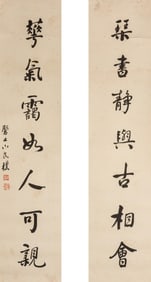 琹書靜與古相會
華氣靄如人可親